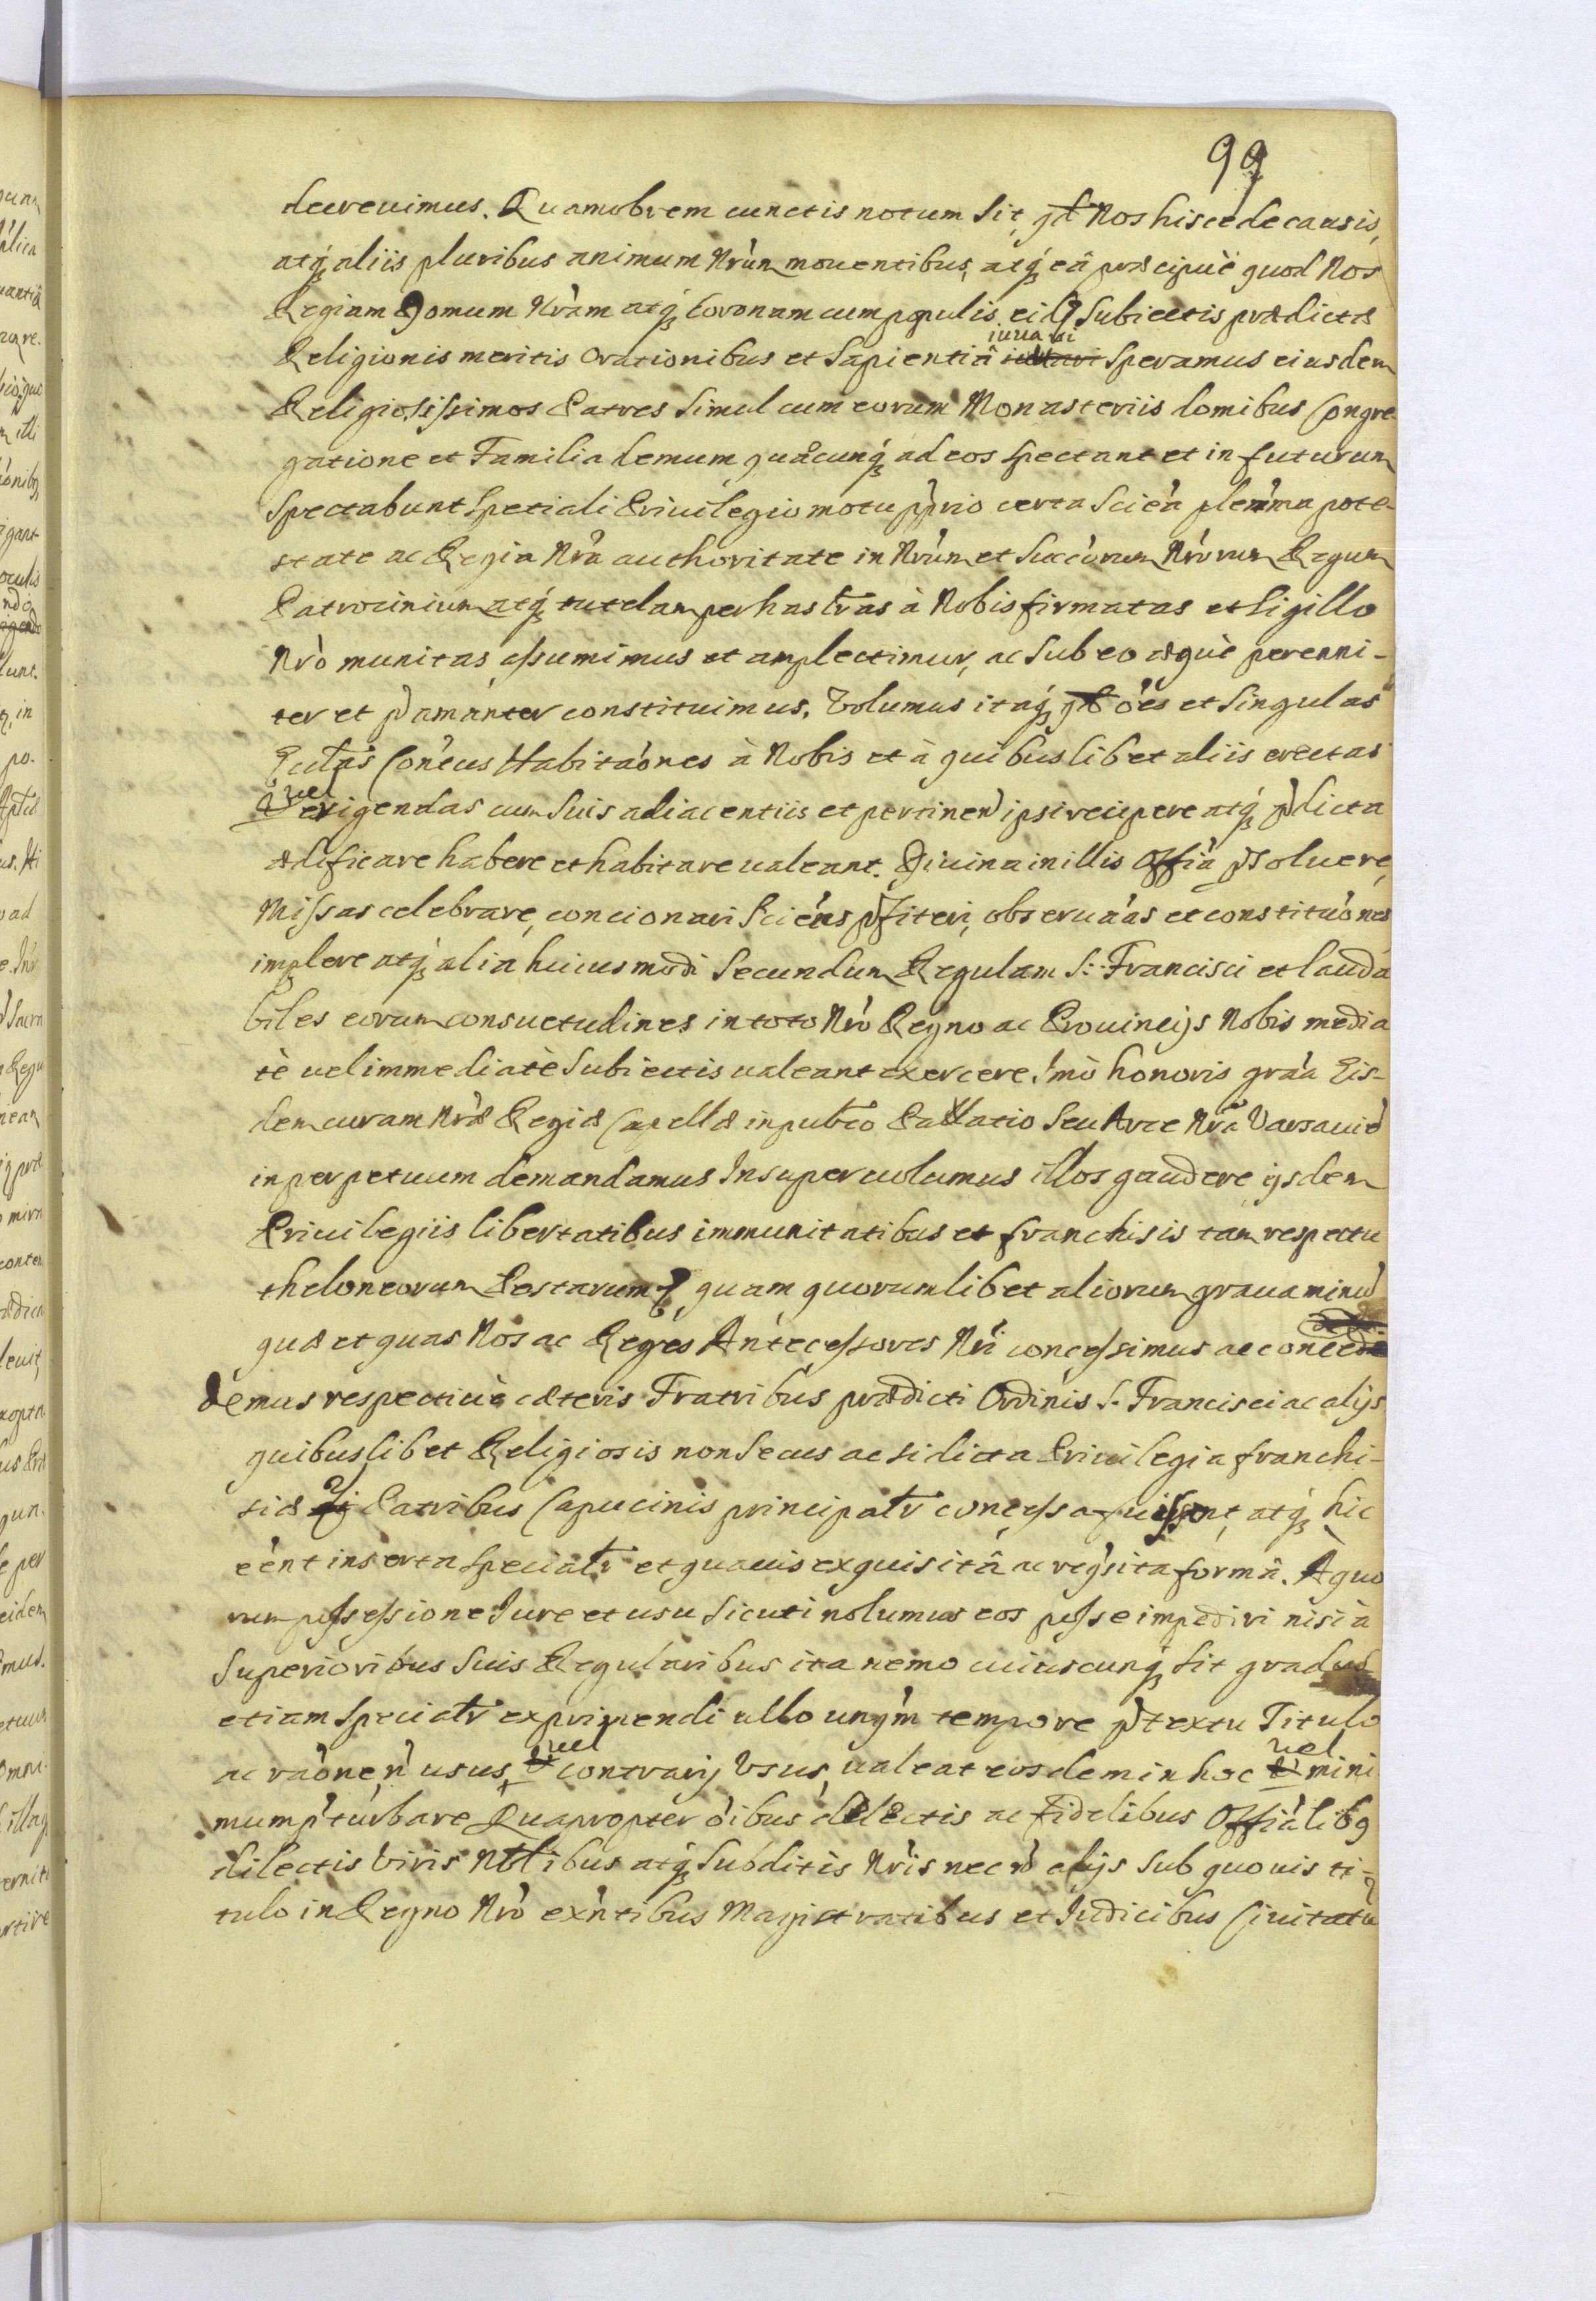 99
decreuimus. Quamobrem cunctis notum Sit, qd Nos hisce de causis,
atq́ aliis pluribus animum Nrùm mouentibus, atq́ eâ præcipuè quod Nos
Regiam Domum Nràm atq́ Coronam cum populis eidẽ Subiectis prædictæ
iuuari
Religionis meritis Orationibus et Sapientiâ Speramus eiusdem
Religiosissimos Patres Simul cum eorum Monasteriis Domibus Congre-
gatione et Familia demum quæcunq́ ad eos Spectant et in futurum
Spectabunt Spetiali Priuilegio motu pp̀rio certa Scie'a plenr'ma pote-
state ac Regia Nrà authoritate in Nrùm et Succ'orum Nr'orum Regum
Patrocinium atq́ tutelam per has lr̃as à Nobis firmatas et Sigillo
Nrò munitas, assumimus et amplectimur, ac Sub eo æquè perenni-
ter et p'amanter constituimus. Volumus itaq́ qd o'es et Singulas
Ecclãs Con'cus Habita'ones à Nobis et à quibuslibet aliis erectas
vel
erigendas cum Suis adiacentiis et pertinen' ipsi recipere atq́ p'dicta
ædificare habere et habitare ualeant. Diuina in illis Offi'a p'Soluere,
Missas celebrare, concionari Scie'as p'fiteri, obserua'as et constitu'ones
implere atq́ alia huiusmodi Secundum Regulam S. Francisci et lauda
biles eorum consuetudines in toto Nrò Regno ac Prouincijs Nobis media
tè uel immediatè Subiectis ualeant exercere. Imò honoris gra'a Eis-
dem curam Nræ Regiæ Capellæ in publ̃co Pallatio Seu Arce Nrã Varsauie'
in perpetuum demandamus Insuper uolumus illos gaudere ijsdem
Priuilegiis libertatibus immunitatibus et franchisis tam respectu
theloneorum Postarumq́, quam quorumlibet aliorum grauaminu'
quæ et quas Nos ac Reges Antecessores Nri concessimus ac conce
demus respectiuè cæteris Fratribus prædicti Ordinis S. Francisci ac alijs
quibuslibet Religiosis non Secus ac si dicta Priuilegia franchi-
siæ Patribus Capucinis principalr̃ concessa fuissent, atq́ hic
ee'nt inserta Specialr̃ et quauis exquisitâ ac req'sita formâ. A quo
rum possessione Iure et usu Sicuti nolumus eos posse impediri nisi à
Superioribus Suis Regularibus ita nemo cuiuscunq́ Sit gradus
etiam Specialr̃ exprimendi ullo unq'm tempore p'textu Titulo
vel vel
ac ra'one, n' usus, contrarij Vsus, ualeat eosdem in hoc mini
mum p'turbare Quapropter o'ibus dilectis ac fidelibus Offi'alibq
dilectis Viris Nobl̃ibus atq́ Subditis Nr'is nec n' alijs Sub quouis ti-
tulo in Regno Nrò ex'ntibus Magistratibus et Iudicibus Ciuitatu